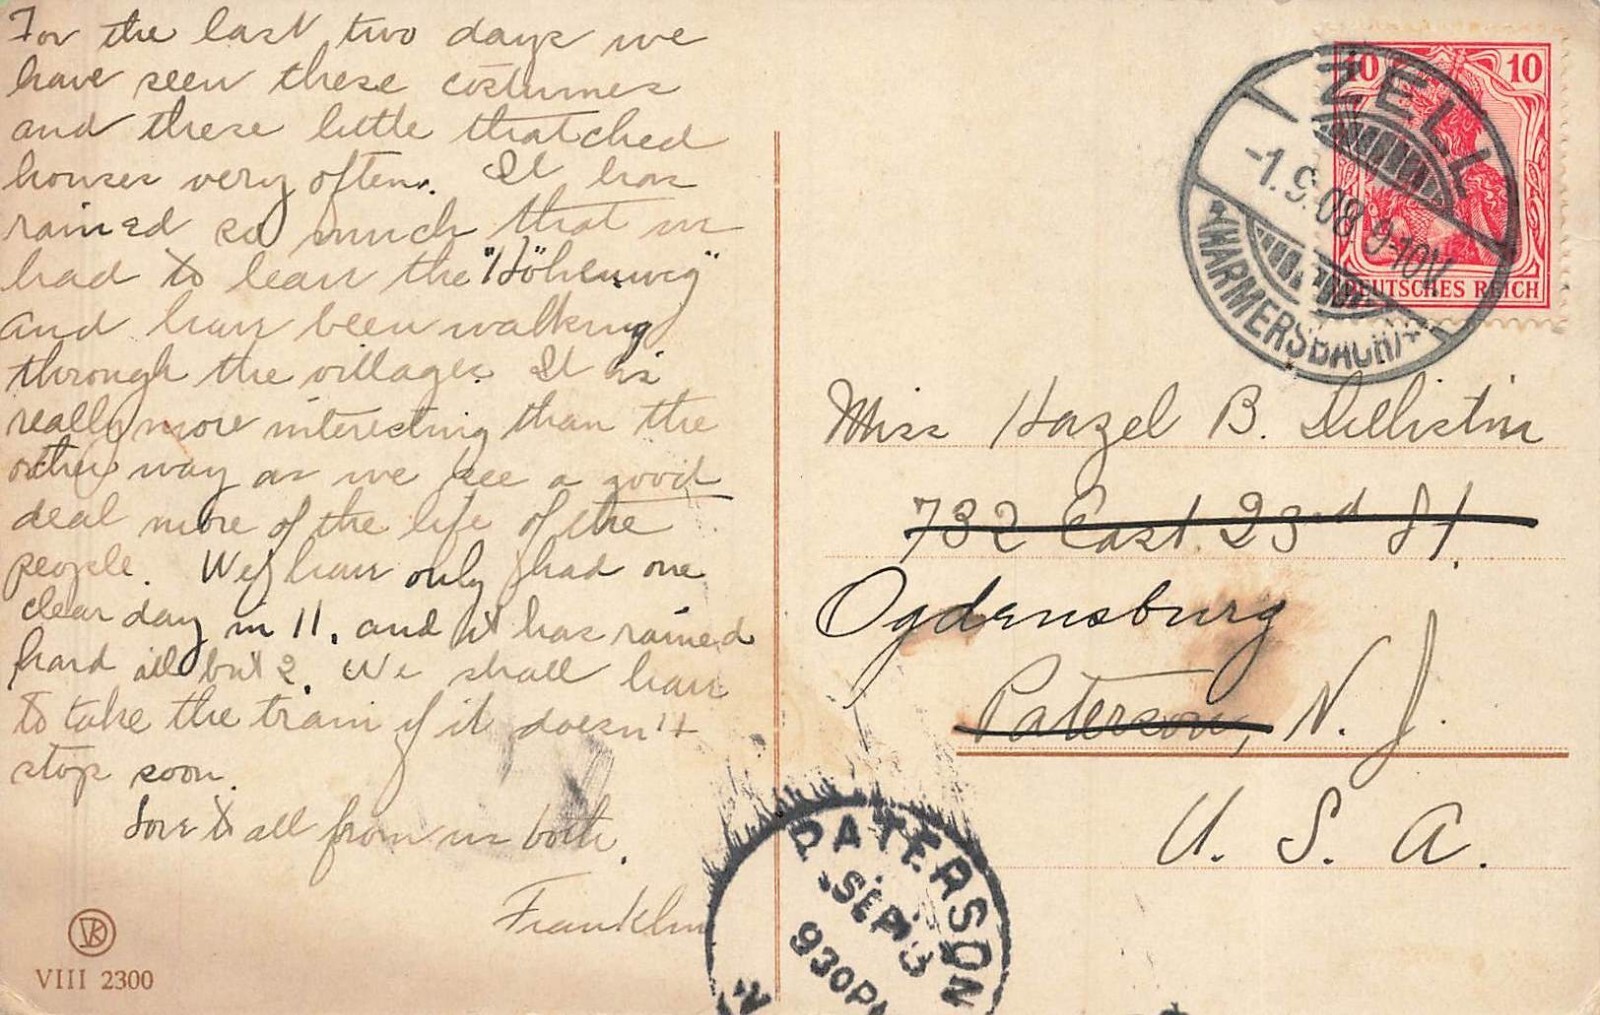 For the last two days we
have seen these costumes
and these little thatched
houses very often. It has
rained so much that we
had to leave the "Höhenweg"
and have been walking
through the villages. It is
really more interesting than the
other way as we see a good
deal more of the life of the
people. We have only had one
clear day in 11. and it has rained
hard all but 2. We shall have
to take the train if it doesn't
stop soon.
Love to all from us both.
Franklin
VK
VIII 2300
10 10
DEUTSCHES REICH
ZELL
-1.9.08 9-10V.
(HARMERSBACH)
Miss Hazel B. Dellistin
732 East 23rd St.
Ogdensburg
Paterson, N. J.
U. S. A.
PATERSON
SEP 13
930PM
N